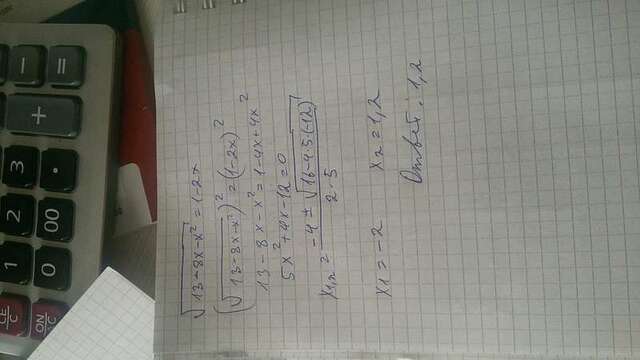 CE/C 1 2 3 −
ON/C 0 00 • + =
√(13-8x-x²) = 1-2x
(√(13-8x-x²))² = (1-2x)²
13-8x-x² = 1-4x+4x²
5x²+4x-12=0
x1,2 = (-4 ± √(16-4·5·(-12)))/(2·5)
x1 = -2 x2 = 1,2
Ответ: 1,2